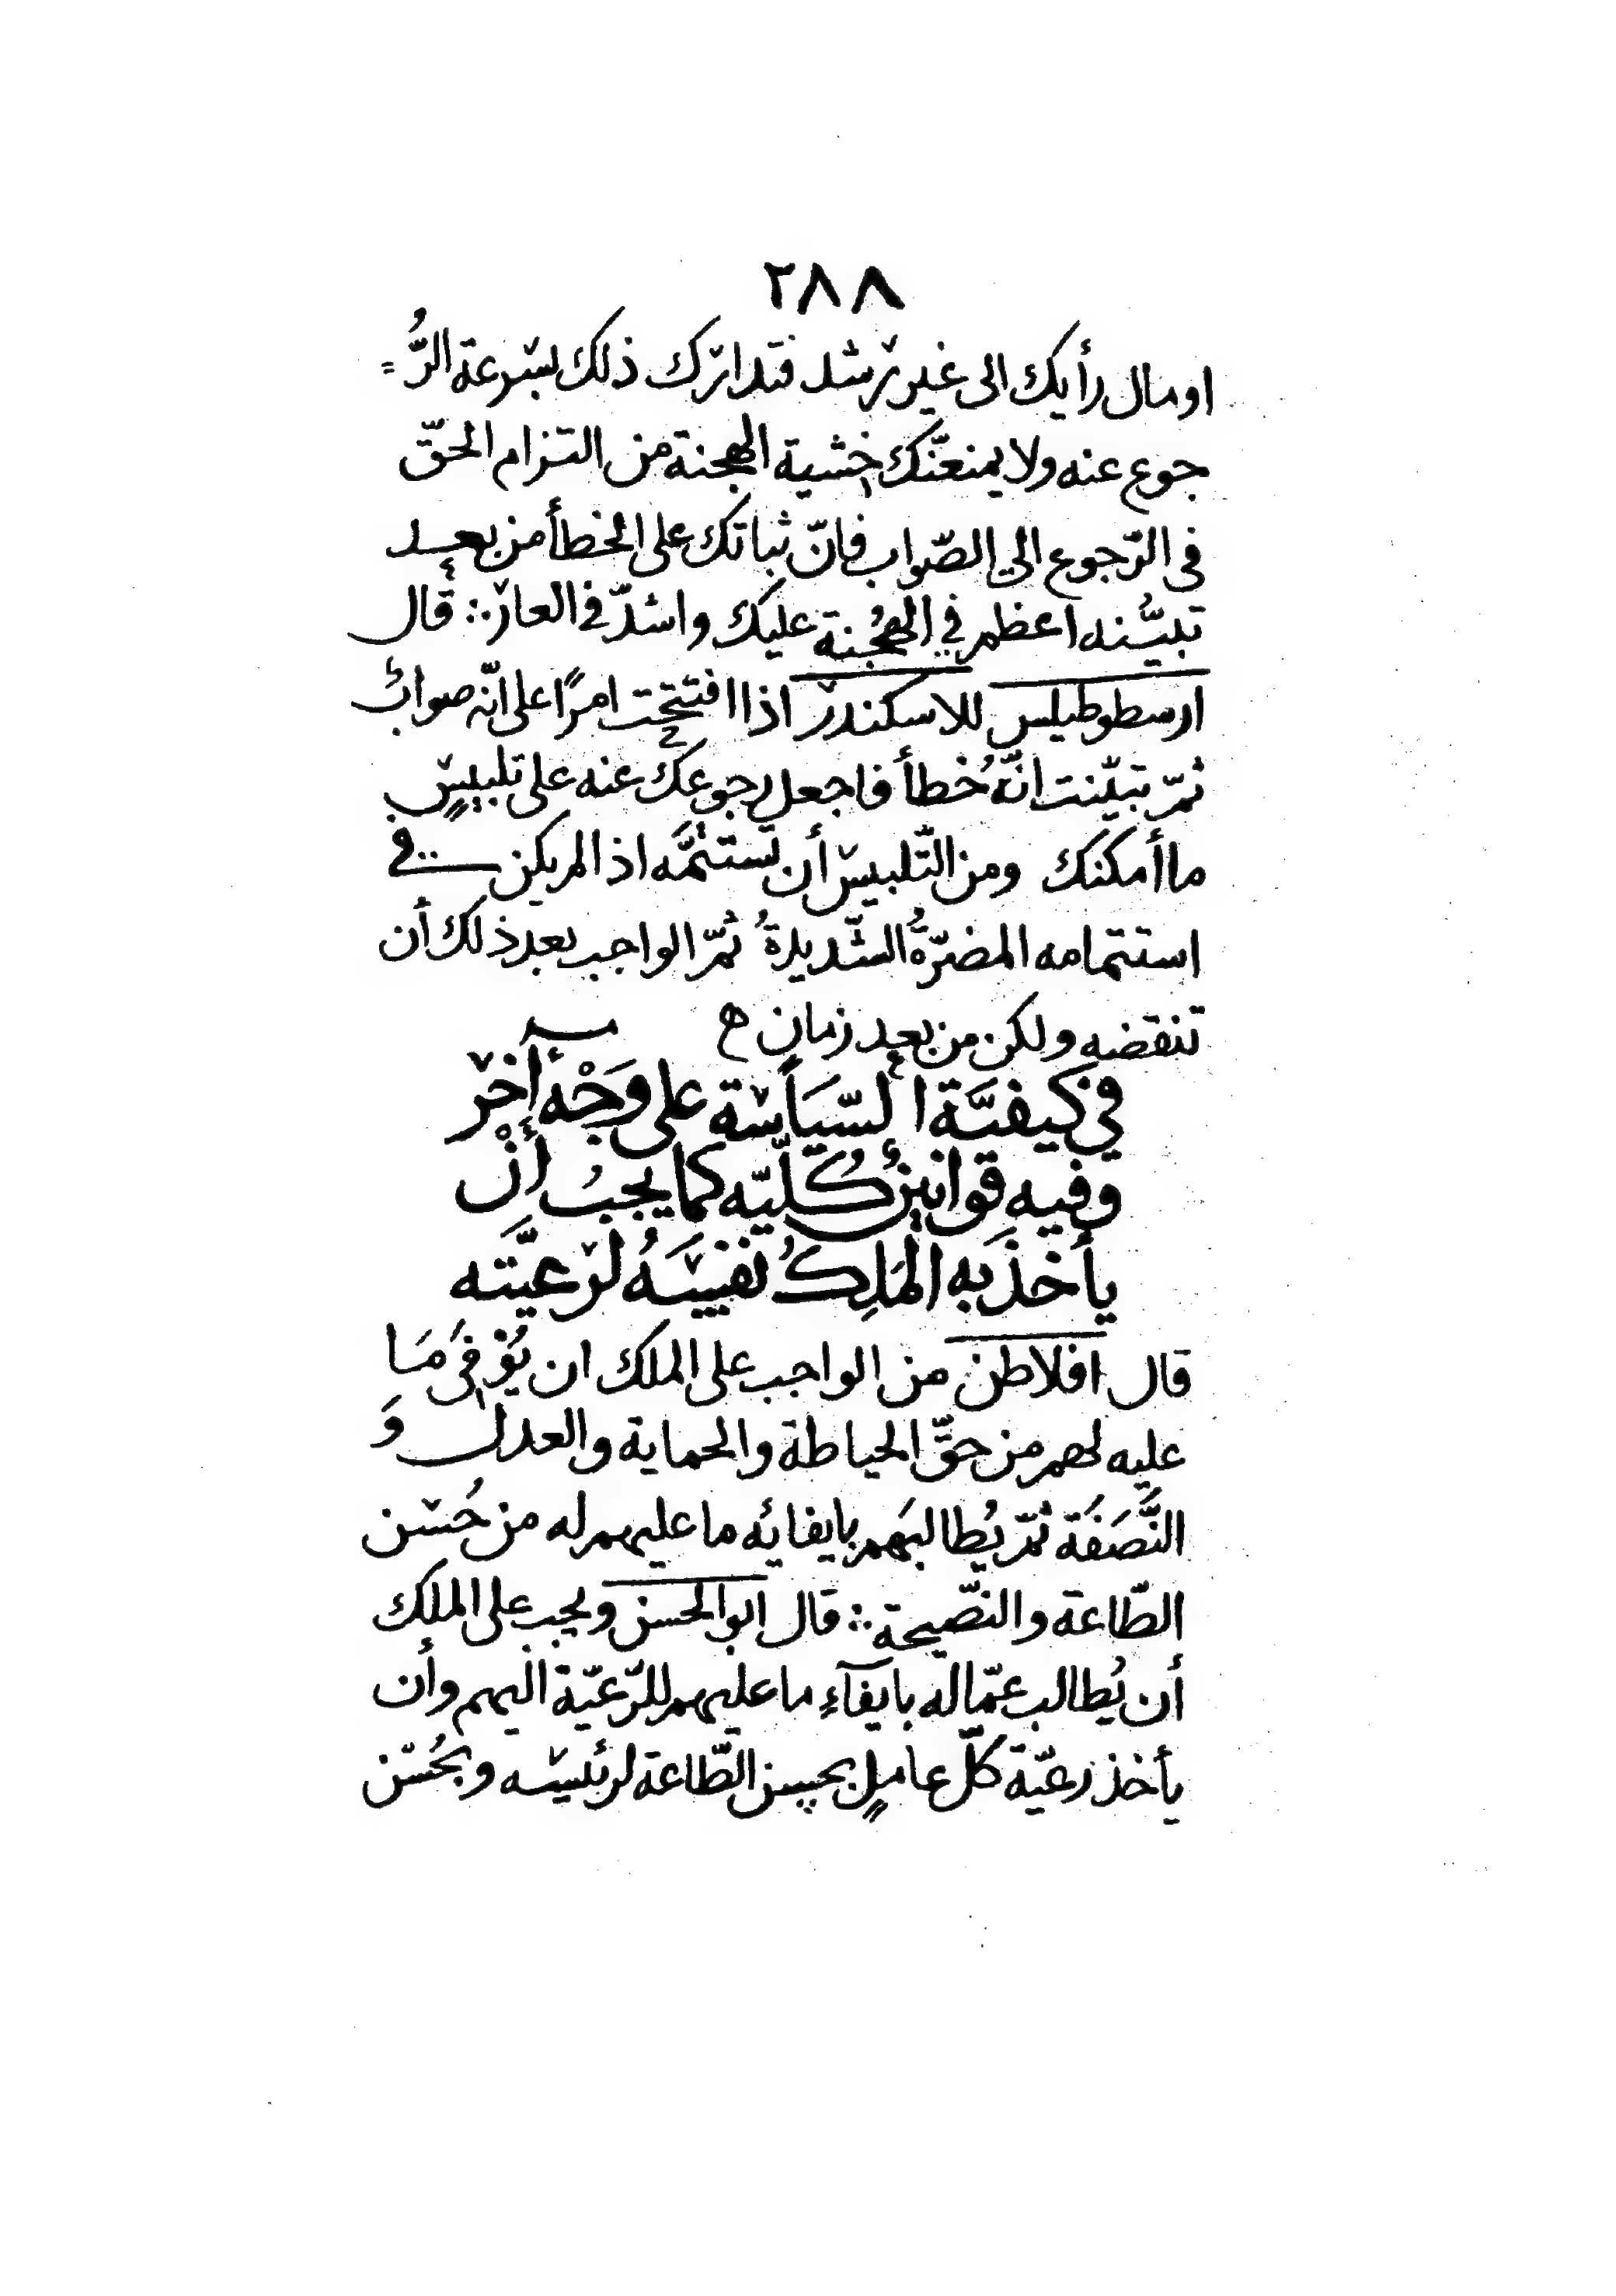 ٢٨٨
او مال رأيك الى غير رشد فتدارك ذلك بسرعة الرُّ=
جوع عنه ولا يمنعنّك خشية الهجنة من التزام الحقّ
فى الرّجوع الى الصّواب فانّ ثباتك على الخطأ من بعد
تبيُّنه اعظم في الهُجُنة عليك واشدّ في العار ∴ قال
ارسطوطيلس للاسكندر اذا افتتحت امرًا على انّه صوابٌ
ثمّ تبيّنت انّهُ خطأ فاجعل رجوعك عنه على تلبيسٍ
ما أمكنك ومن التّلبيس أن تستتمَّه اذا لم يكن في
استتمامه المضرّةُ الشّديدةُ ثمّ الواجب بعد ذلك أن
تنقضه ولكن من بعد زمان ه
في كيفيَّة السّيَاسَة على وَجْه آخر
وفيه قوانينُ كُلّيّه كما يجبُ أنْ
يأخذَ به المَلِكُ نفسَهُ لرعيَّته
قال افلاطن من الواجب على الملك ان يُوْفىَ مَا
عليه لهم من حقِّ الحياطة والحماية والعدل وَ
النَّصَفَة ثمّ يُطالبَهم بايفائه ما عليهم له من حُسْن
الطّاعة والنصّيحة ∴ قال ابو الحسن ويجب على الملك
أن يُطالب عمّاله بايفآءِ ما عليهم للرّعيّة اليهم وأن
يأخذ رعيّة كلّ عاملٍ بحسن الطّاعة لرئيسه وبحُسْن